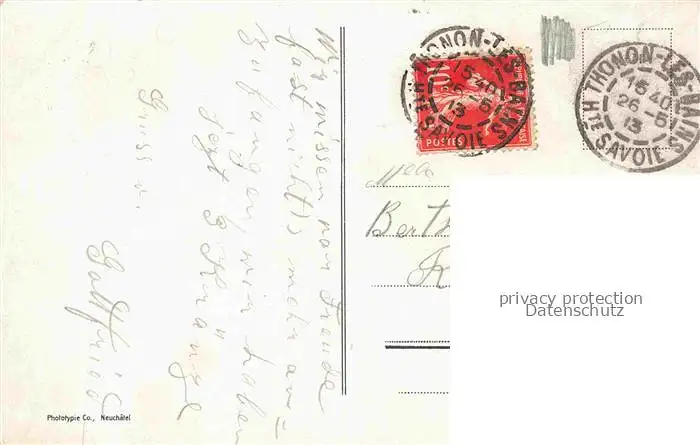 Wir wissen vor Freude
fast nicht's mehr an=
zufangen, wir haben
jetzt 3 Kränze
Gruss v.
Gottfried
Phototypie Co., Neuchâtel
10
POSTES
THONON-LES-BAINS
15 40
26 - 5
13
HTE SAVOIE
THONON-LES-BAINS
15 40
26 - 5
13
HTE SAVOIE
Melle
Bert
privacy protection
Datenschutz